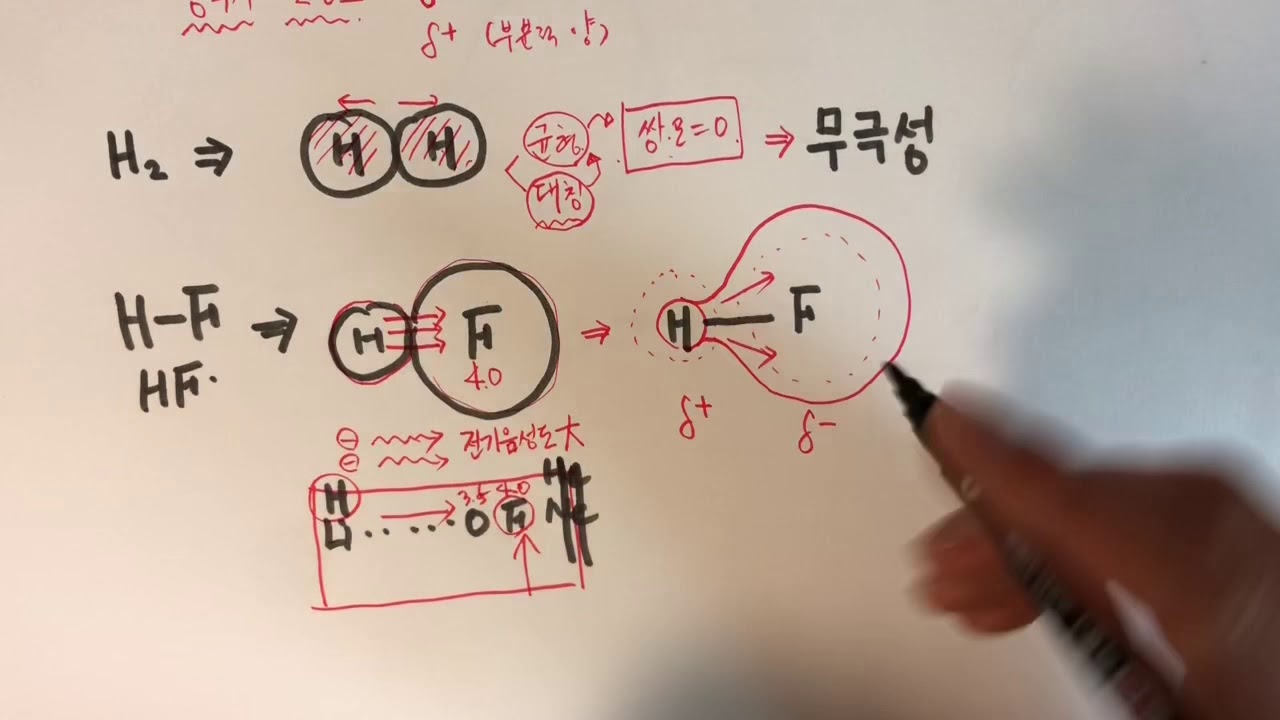 δ+ (부분적 양)
H₂ ⇒ H H 균형 대칭 쌍.모=0 ⇒ 무극성
H-F ⇒ H F ⇒ H F
HF 4.0
δ+ δ-
⊖ → 전기음성도 大
⊖ →
H He
3.5 4.0
Li ...... O F Ne